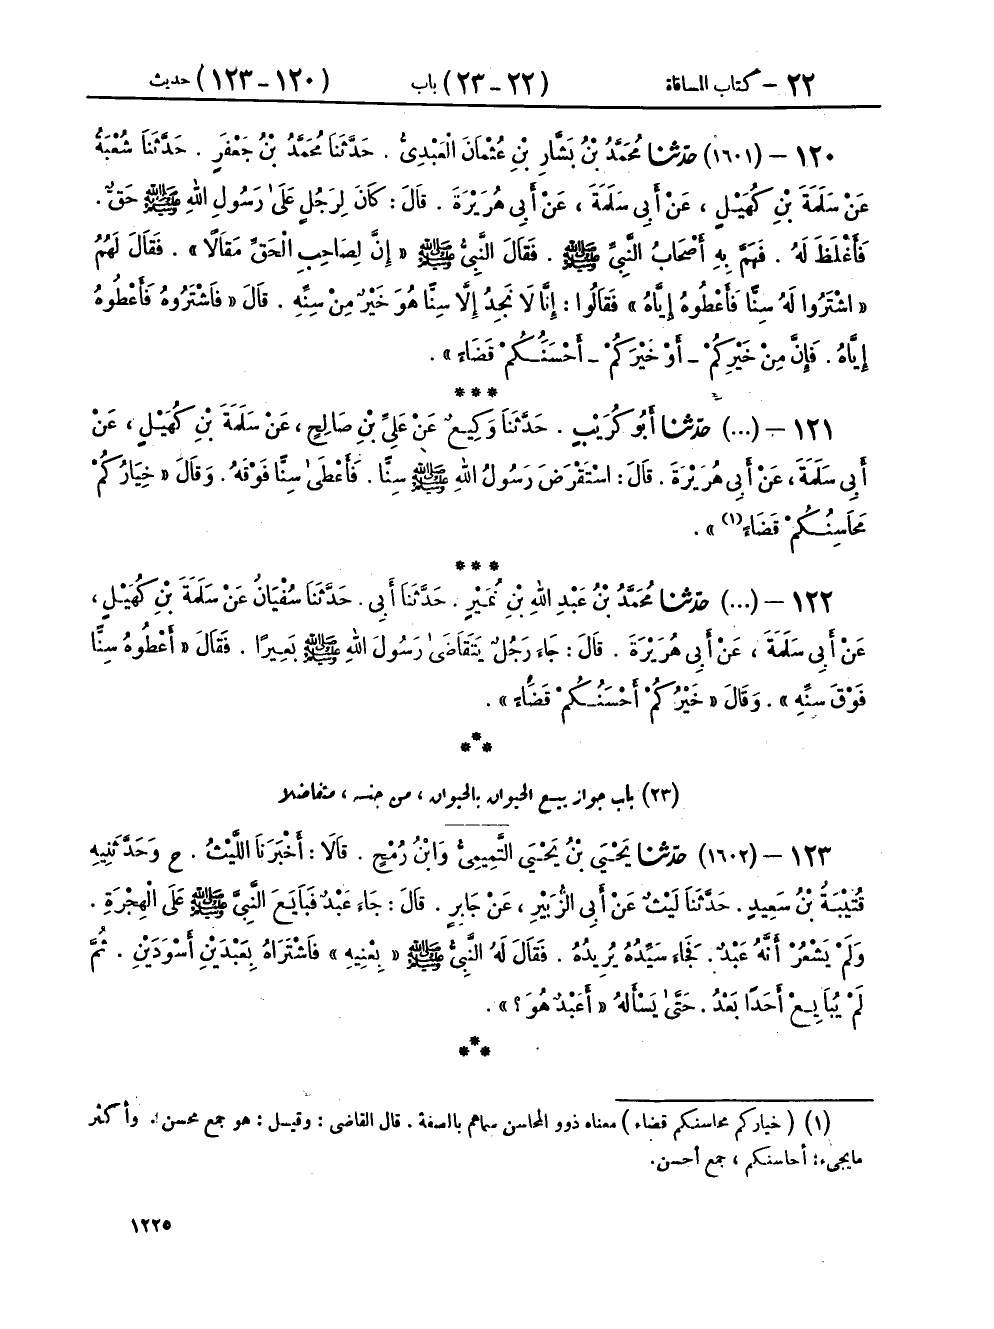 ٢٢ – كتاب المساقاة (٢٢ – ٢٣) باب (١٢٠ – ١٢٣) حديث
١٢٠ – (١٦٠١) حدّثنا مُحَمَّدُ بْنُ بَشَّارِ بْنِ عُثْمَانَ الْعَبْدِىُّ . حَدَّثَنَا مُحَمَّدُ بْنُ جَعْفَرٍ . حَدَّثَنَا شُعْبَةُ
عَنْ سَلَمَةَ بْنِ كُهَيْلٍ ، عَنْ أَبِى سَلَمَةَ ، عَنْ أَبِى هُرَيْرَةَ . قَالَ : كَانَ لِرَجُلٍ عَلَىٰ رَسُولِ اللهِ ﷺ حَقٌّ .
فَأَغْلَظَ لَهُ . فَهَمَّ بِهِ أَصْحَابُ النَّبِىِّ ﷺ . فَقَالَ النَّبِىُّ ﷺ « إِنَّ لِصَاحِبِ الْحَقِّ مَقَالًا » . فَقَالَ لَهُمُ
« اشْتَرُوا لَهُ سِنًّا فَأَعْطُوهُ إِيَّاهُ » فَقَالُوا : إِنَّا لَا نَجِدُ إِلَّا سِنًّا هُوَ خَيْرٌ مِنْ سِنِّهِ . قَالَ « فَاشْتَرُوهُ فَأَعْطُوهُ
إِيَّاهُ . فَإِنَّ مِنْ خَيْرِكُمْ – أَوْ خَيْرَكُمْ – أَحْسَنُكُمْ قَضَاءً » .
***
١٢١ – (...) حدّثنا أَبُو كُرَيْبٍ . حَدَّثَنَا وَكِيعٌ عَنْ عَلِىِّ بْنِ صَالِحٍ ، عَنْ سَلَمَةَ بْنِ كُهَيْلٍ ، عَنْ
أَبِى سَلَمَةَ ، عَنْ أَبِى هُرَيْرَةَ . قَالَ : اسْتَقْرَضَ رَسُولُ اللهِ ﷺ سِنًّا . فَأَعْطَىٰ سِنًّا فَوْقَهُ . وَقَالَ « خِيَارُكُمْ
مَحَاسِنُكُمْ قَضَاءً (١) » .
***
١٢٢ – (...) حدّثنا مُحَمَّدُ بْنُ عَبْدِ اللهِ بْنِ نُمَيْرٍ . حَدَّثَنَا أَبِى . حَدَّثَنَا سُفْيَانُ عَنْ سَلَمَةَ بْنِ كُهَيْلٍ ،
عَنْ أَبِى سَلَمَةَ ، عَنْ أَبِى هُرَيْرَةَ . قَالَ : جَاءَ رَجُلٌ يَتَقَاضَىٰ رَسُولَ اللهِ ﷺ بَعِيرًا . فَقَالَ « أَعْطُوهُ سِنًّا
فَوْقَ سِنِّهِ » . وَقَالَ « خَيْرُكُمْ أَحْسَنُكُمْ قَضَاءً » .
***
(٢٣) باب جواز بيع الحيوان بالحيوان ، من جنسه ، متفاضلا
١٢٣ – (١٦٠٢) حدّثنا يَحْيَىٰ بْنُ يَحْيَى التَّمِيمِىُّ وَابْنُ رُمْحٍ . قَالَا : أَخْبَرَنَا اللَّيْثُ . ح وَحَدَّثَنِيهِ
قُتَيْبَةُ بْنُ سَعِيدٍ . حَدَّثَنَا لَيْثٌ عَنْ أَبِى الزُّبَيْرِ ، عَنْ جَابِرٍ . قَالَ : جَاءَ عَبْدٌ فَبَايَعَ النَّبِىَّ ﷺ عَلَى الْهِجْرَةِ .
وَلَمْ يَشْعُرْ أَنَّهُ عَبْدٌ . فَجَاءَ سَيِّدُهُ يُرِيدُهُ . فَقَالَ لَهُ النَّبِىُّ ﷺ « بِعْنِيهِ » فَاشْتَرَاهُ بِعَبْدَيْنِ أَسْوَدَيْنِ . ثُمَّ
لَمْ يُبَايِعْ أَحَدًا بَعْدُ . حَتَّىٰ يَسْأَلَهُ « أَعَبْدٌ هُوَ ؟ » .
***
(١) ( خياركم محاسنكم قضاء ) معناه ذوو المحاسن سماهم بالصفة . قال القاضى : وقيل : هو جمع محسن . وأكثر
مايجىء : أحاسنكم ، جمع أحسن .
١٢٢٥